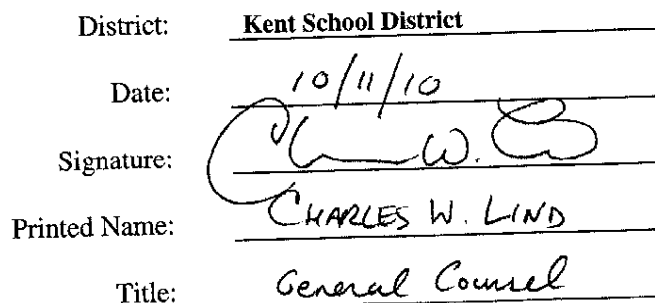 District: Kent School District
Date: 10/11/10
Signature: Ch W. L
Printed Name: CHARLES W. LIND
Title: General Counsel